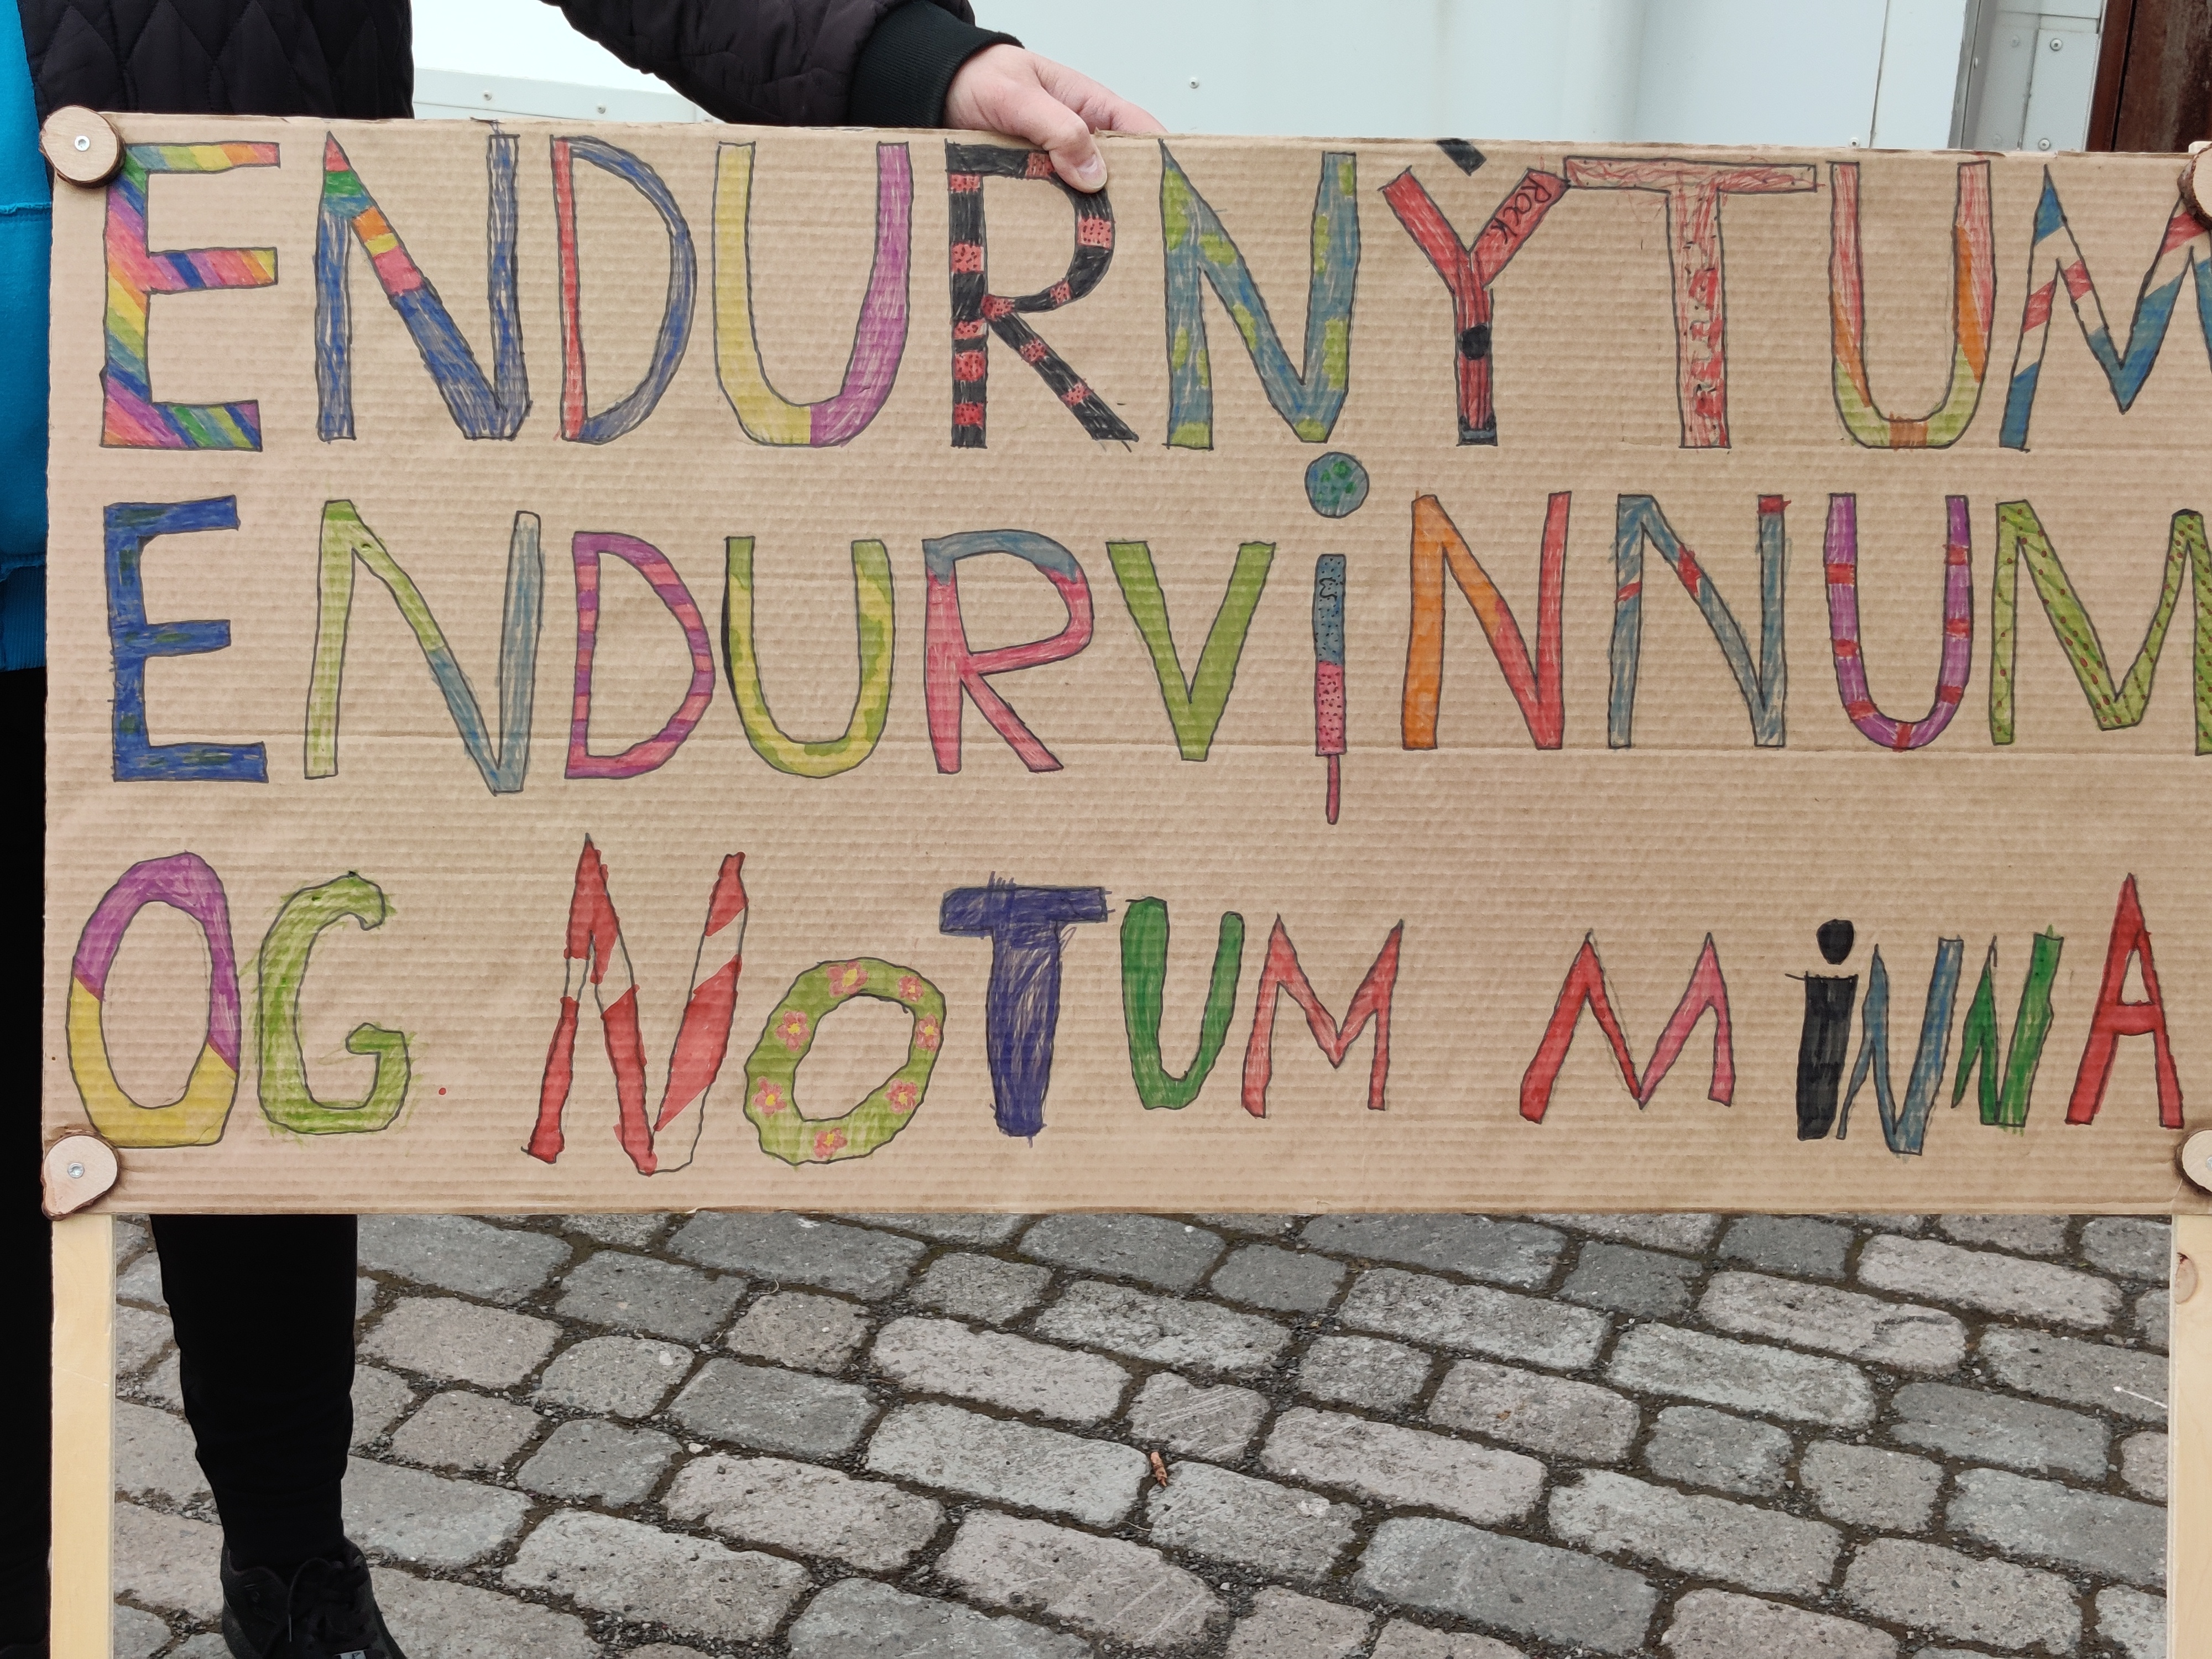 ENDURNỲTUM
Rock
ENDURViNNUM
OG NOTUM MiNNA